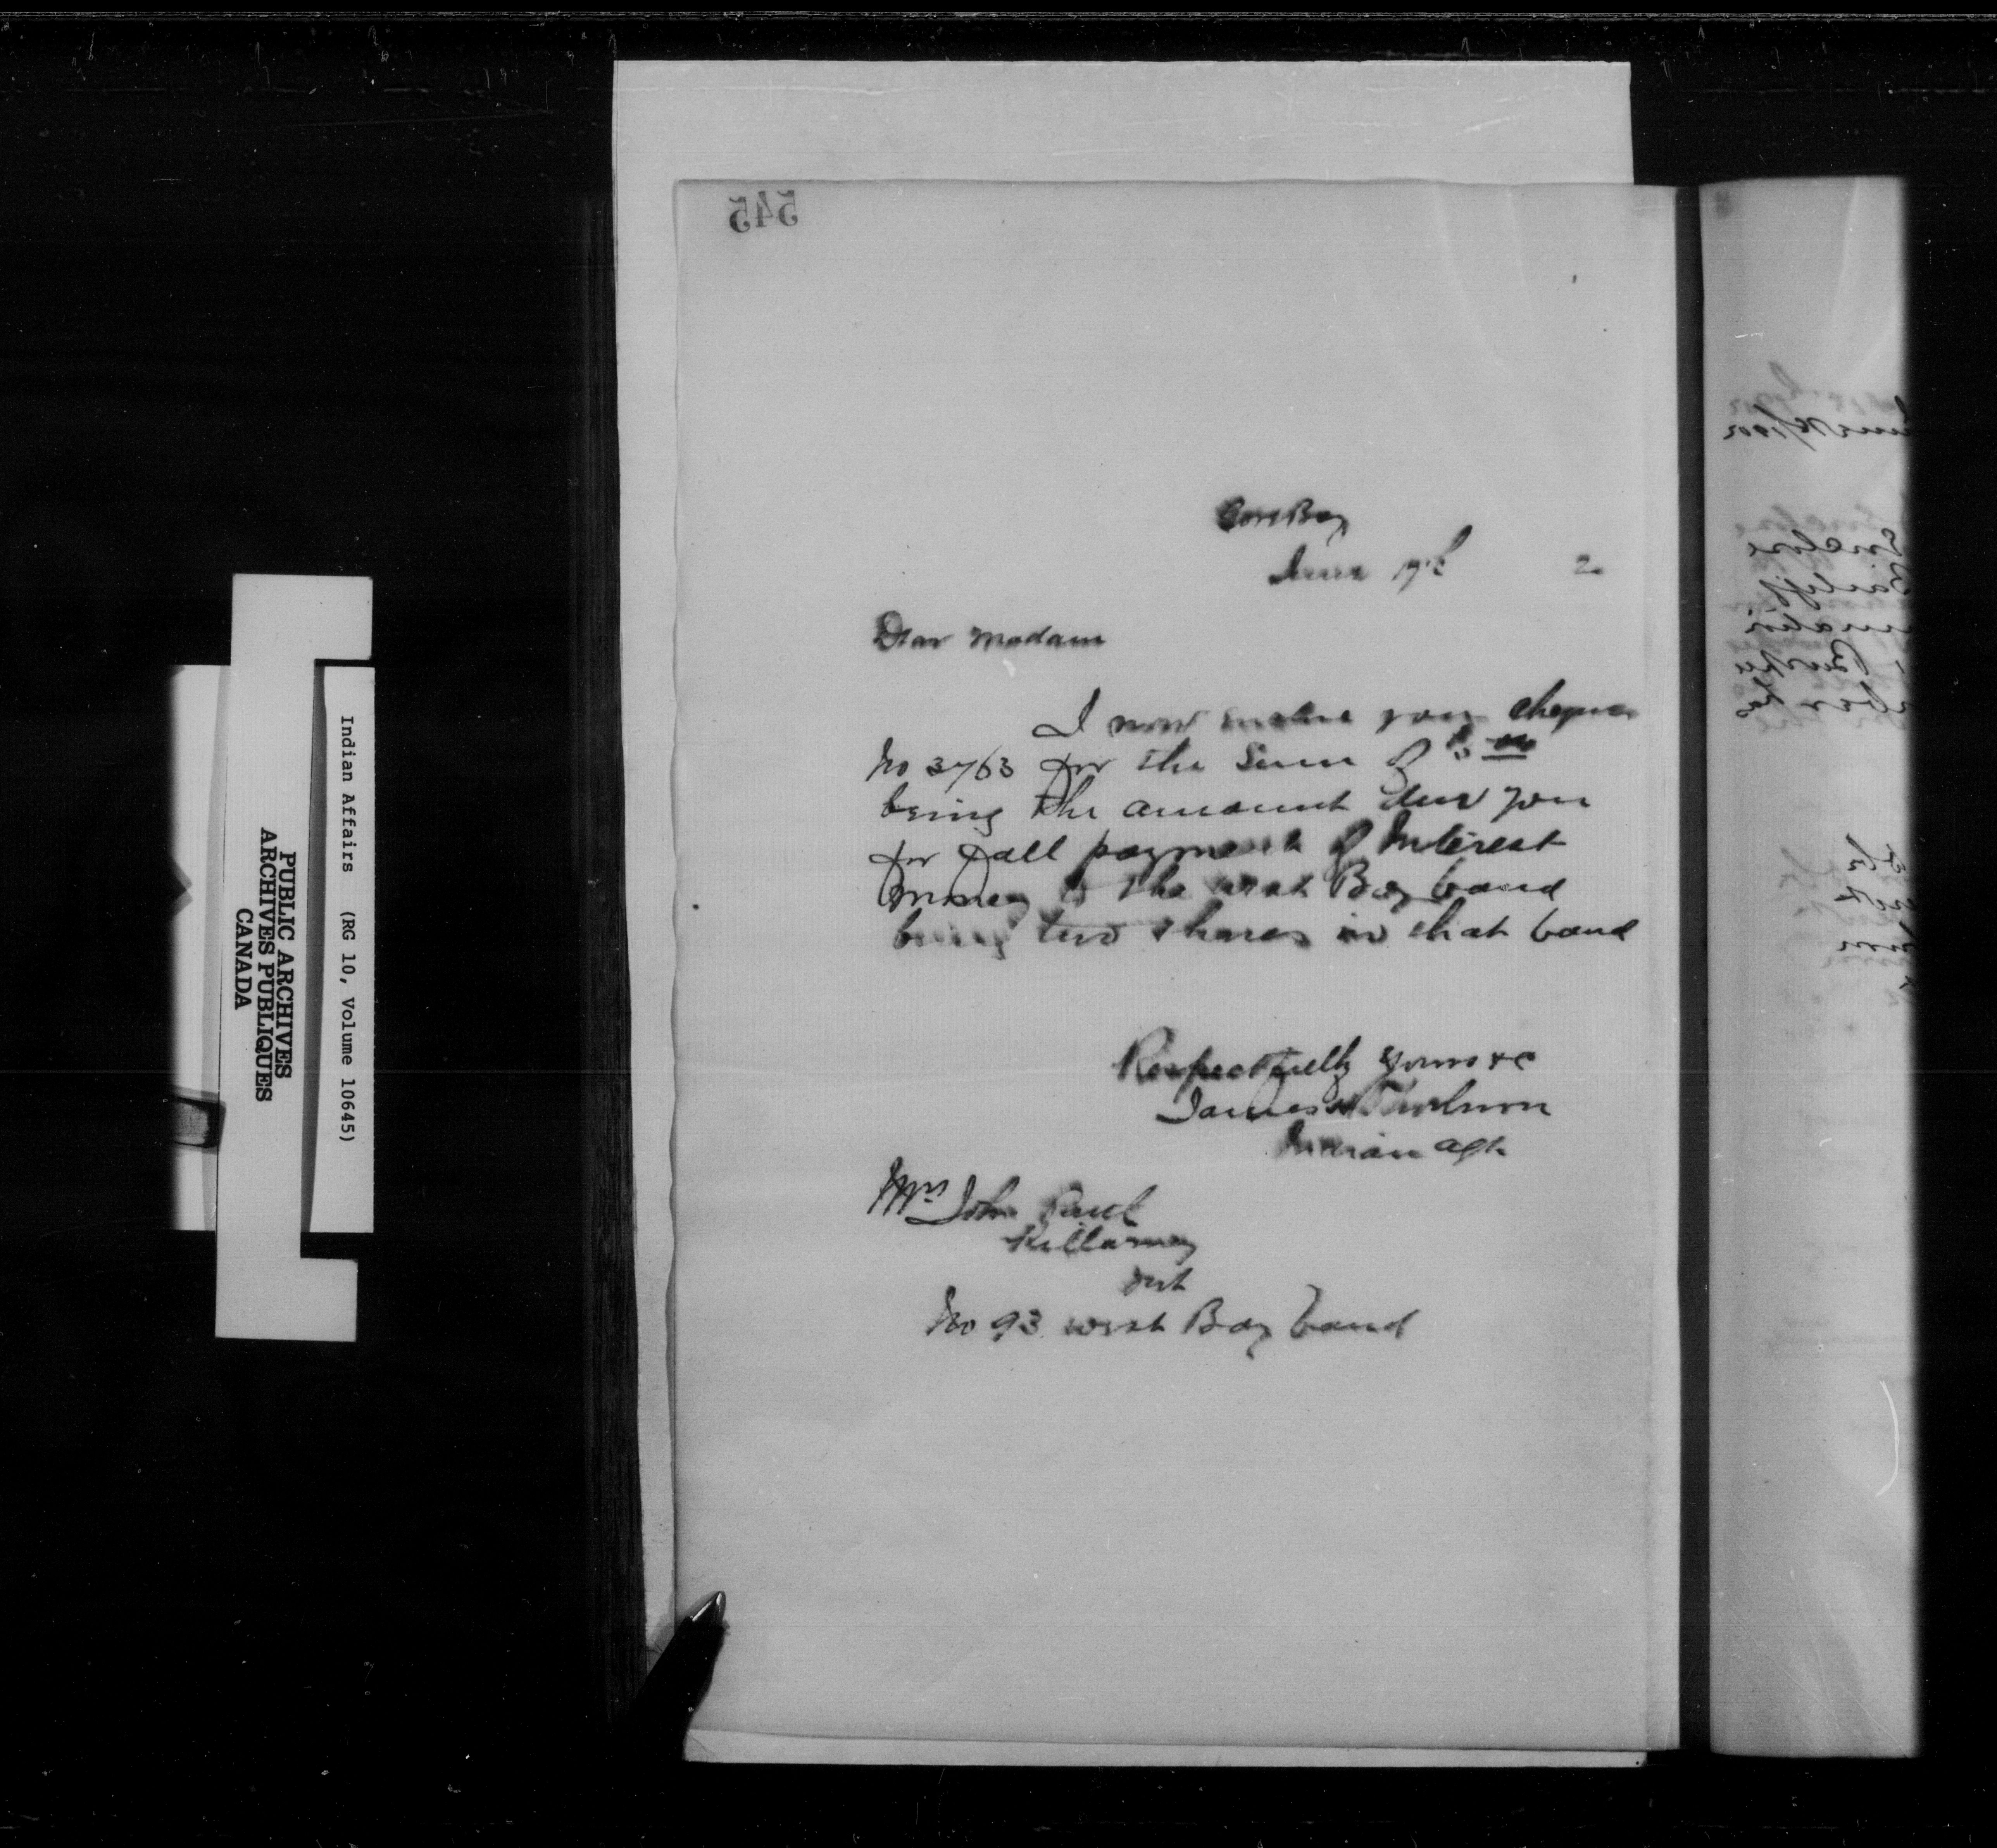 545
Gore Bay
June 19th 2
Dear Madam
I now enclose you cheque
No 3763 for the Sum of
being the amount due you
for fall payment of Interest
money to the west Bay band
being two shares in that band
Respectfully yours &c
James
Indian Agt
Mrs John Paul
Killarney
Ont
No 93 west Bay band
Indian Affairs (RG 10, Volume 10645)
PUBLIC ARCHIVES
ARCHIVES PUBLIQUES
CANADA